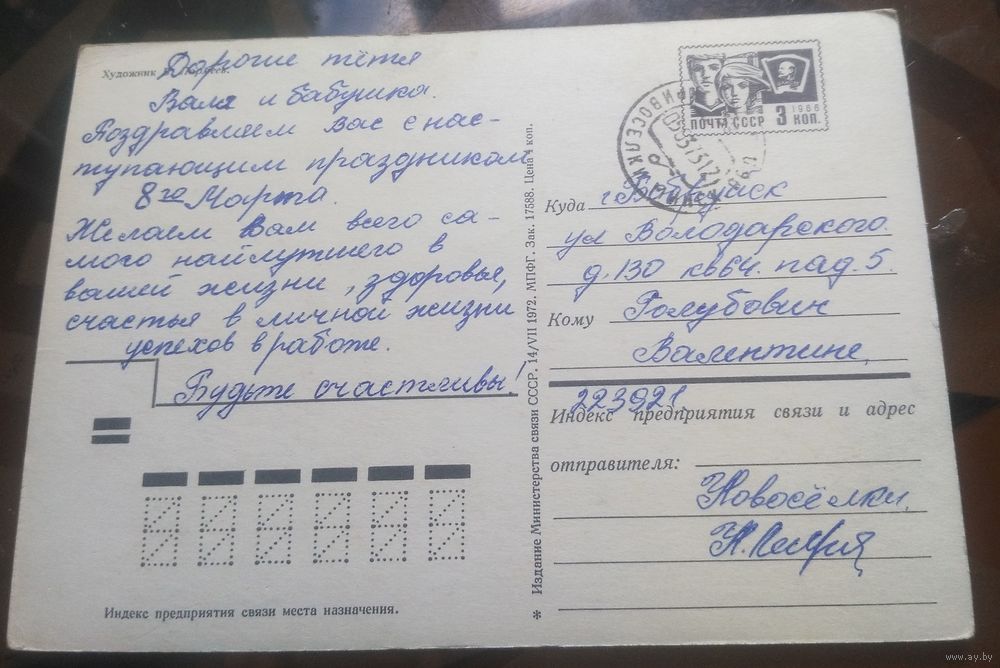 Художник
Дорогие тётя
Валя и бабушка.
Поздравляем Вас с нас-
тупающим праздником
8го Марта.
Желаем Вам всего са-
мого найлутшего в
вашей жизни, здоровья,
счастья в личной жизни
успехов в работе.
Будьте счастливы!
Индекс предприятия связи места назначения.
* Издание Министерства связи СССР. 14/VII 1972. МПФГ. Зак. 17588. Цена 4 коп.
ПОЧТА СССР 3 КОП.
1966
Куда г. Бобруйск
ул Володарского.
д. 130 кв 64. пад. 5.
Кому Голубович
Валентине,
223921
Индекс предприятия связи и адрес
отправителя:
Новосёлки,
www.ay.by